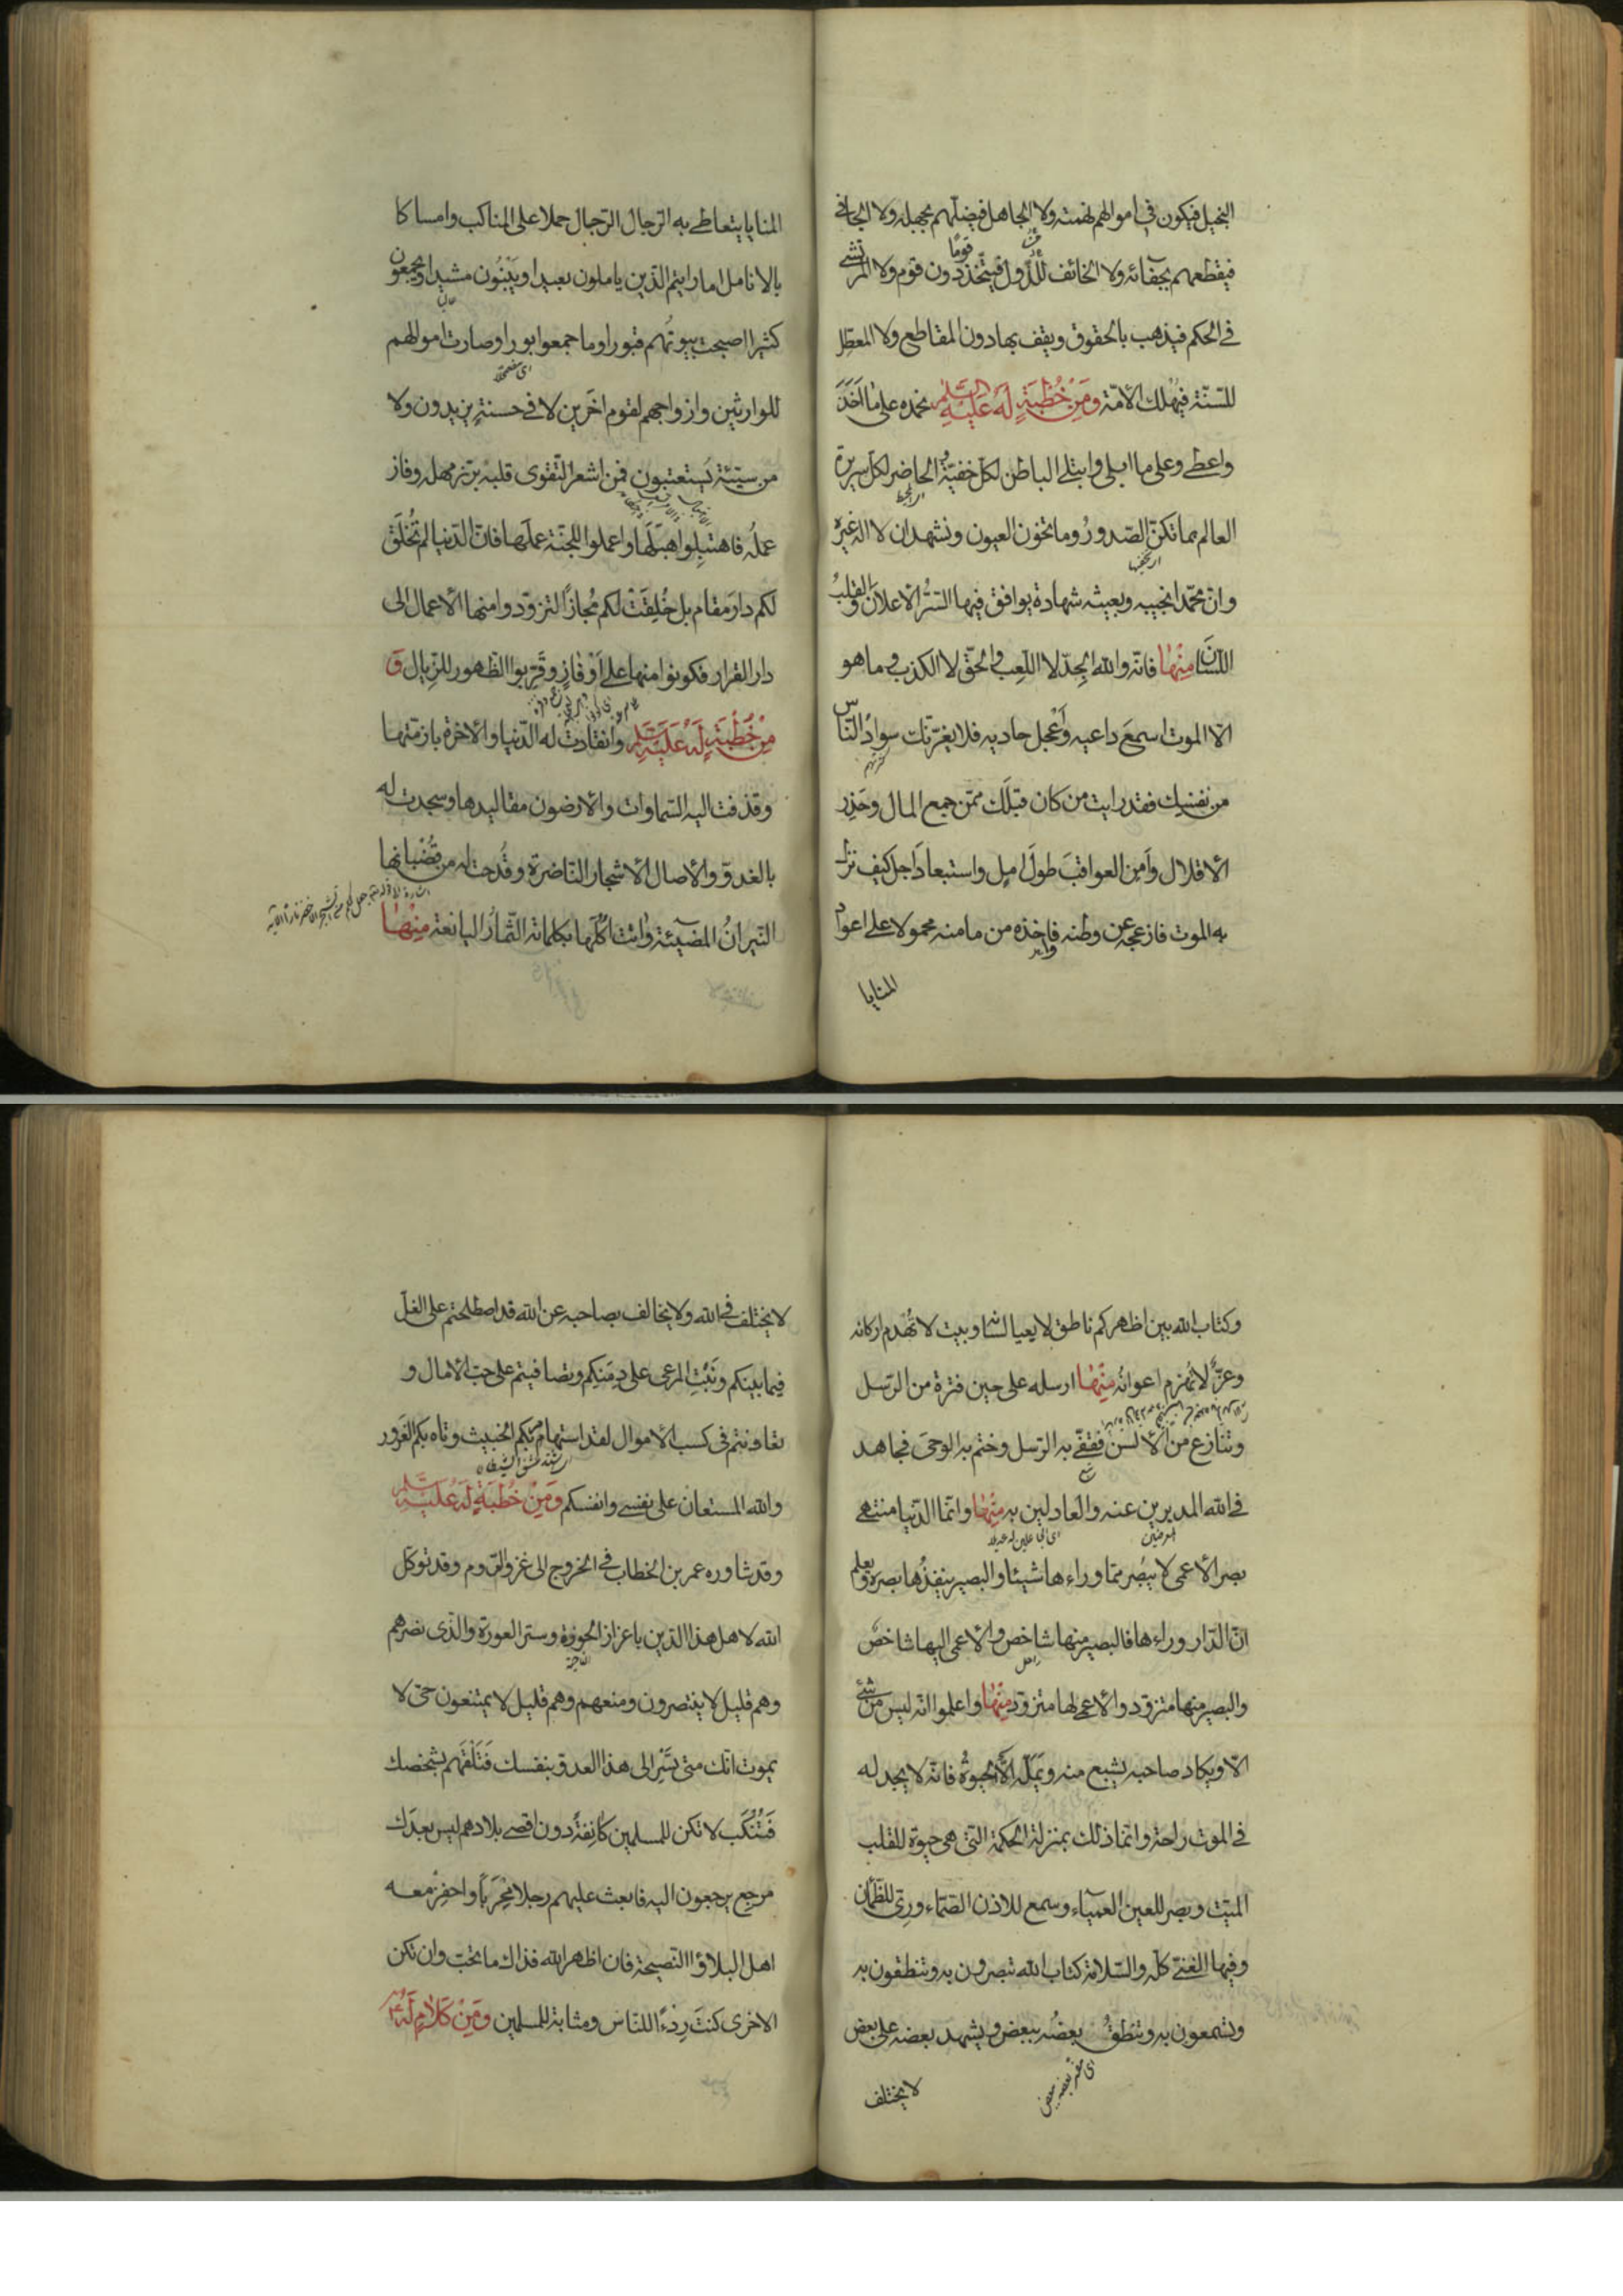 البخيل فيكون في اموالهم نهمته ولا الجاهل فيضلهم بجهله ولا الجافي
فيقطعهم بجفائه ولا الخائف للدول فيتخذ قوما دون قوم ولا المرتشي
في الحكم فيذهب بالحقوق ويقف بها دون المقاطع ولا المعطل
للسنة فيهلك الأمة ومن خطبة له عليه السلم نحمده على ما اخذ
واعطى وعلى ما ابلى وابتلى الباطن لكل خفية والحاضر لكل سريرة
العالم بما تكن الصدور وما تخون العيون ونشهد ان لا اله غيره
وان محمدا نجيبه وبعيثه شهادة يوافق فيها السر الاعلان والقلب
اللسان منها فانه والله الجد لا اللعب والحق لا الكذب وما هو
الا الموت اسمع داعيه واعجل حاديه فلا يغرنك سواد الناس
كثرتهم
من نفسك فقد رايت من كان قبلك ممن جمع المال وحذر
الاقلال وامن العواقب طول امل واستبعاد اجل كيف نزل
به الموت فازعجه عن وطنه واخذه من مامنه محمولا على اعواد
المنايا
المنايا يتعاطى به الرجال الرجال حملا على المناكب وامساكا
بالانامل اما رايتم الذين ياملون بعيدا ويبنون مشيدا ويجمعون
كثيرا اصبحت بيوتهم قبورا وما جمعوا بورا وصارت اموالهم
للوارثين وازواجهم لقوم اخرين لا في حسنة يزيدون ولا
من سيئة يستعتبون فمن اشعر التقوى قلبه برز مهله وفاز
عمله فاهتبلوا هبلها واعملوا للجنة عملها فان الدنيا لم تخلق
لكم دار مقام بل خلقت لكم مجازا لتزودوا منها الاعمال الى
دار القرار فكونوا منها على اوفاز وقربوا الظهور للزيال و
من خطبة له عليه السلم وانقادت له الدنيا والاخرة بازمتها
وقذفت اليه السماوات والارضون مقاليدها وسجدت له
بالغدو والاصال الاشجار الناضرة وقدحت له من قضبانها
النيران المضيئة واتت اكلها بكلماته الثمار اليانعة منها
وكتاب الله بين اظهركم ناطق لا يعيا لسانه وبيت لا تهدم اركانه
وعز لا تهزم اعوانه منها ارسله على حين فترة من الرسل
وتنازع من الألسن فقفى به الرسل وختم به الوحى فجاهد
في الله المدبرين عنه والعادلين به منها وانما الدنيا منتهى
المعرضين
بصر الاعمى لا يبصر مما وراءها شيئا والبصير ينفذها بصره ويعلم
ان الدار وراءها فالبصير منها شاخص والاعمى اليها شاخص
راحل
والبصير منها متزود والاعمى لها متزود منها واعلموا انه ليس من شئ
الا ويكاد صاحبه يشبع منه ويمله الا الحيوة فانه لا يجد له
في الموت راحة وانما ذلك بمنزلة الحكمة التي هي حيوة للقلب
الميت وبصر للعين العمياء وسمع للاذن الصماء ورى للظمآن
وفيها الغنى كله والسلامة كتاب الله تبصرون به وتنطقون به
وتسمعون به وينطق بعضه ببعض ويشهد بعضه على بعض
لا يختلف
لا يختلف في الله ولا يخالف بصاحبه عن الله قد اصطلحتم على الغل
فيما بينكم ونبت المرعى على دمنكم وتصافيتم على حب الامال و
تعاديتم في كسب الاموال لقد استهام بكم الخبيث وتاه بكم الغرور
والله المستعان على نفسي وانفسكم ومن خطبة له عليه السلم
وقد شاوره عمر بن الخطاب في الخروج الى غزو الروم وقد توكل
الله لاهل هذا الدين باعزاز الحوزة وستر العورة والذي نصرهم
الناحية
وهم قليل لا ينتصرون ومنعهم وهم قليل لا يمتنعون حى لا
يموت انك متى تسر الى هذا العدو بنفسك فتلقهم بشخصك
فتنكب لا تكن للمسلمين كانفة دون اقصى بلادهم ليس بعدك
مرجع يرجعون اليه فابعث عليهم رجلا محربا واحفز معه
اهل البلاء والنصيحة فان اظهر الله فذاك ما تحب وان تكن
الاخرى كنت ردءا للناس ومثابة للمسلمين ومن كلام له